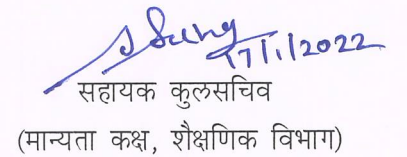 17/1/2022
सहायक कुलसचिव
(मान्यता कक्ष, शैक्षणिक विभाग)